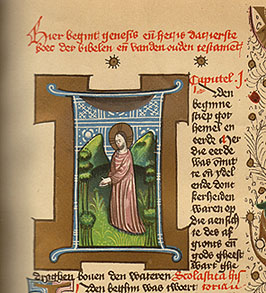 Hier begint genesis en̄ het is dat eerste
boec der bibelen en̄ vanden ouden testament
Capitel .J.
Jnden
beginne
sciep got
hemel en
eerde Mer
die eerde
was onnut
en̄ ydel
ende donc
kerheiden
waren op
die aensch
te des af
gronts en̄
gods gheest
wart ghe
draghen boven den wateren Scolastica his
Jnden beghin was twoert toria